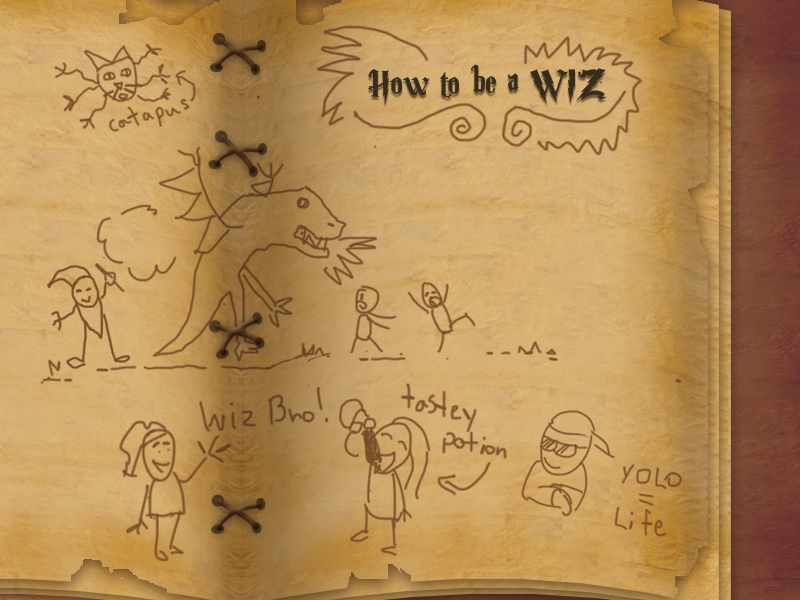 catapus
How to be a WIZ
Wiz Bro!
tastey
potion
YOLO
=
Life